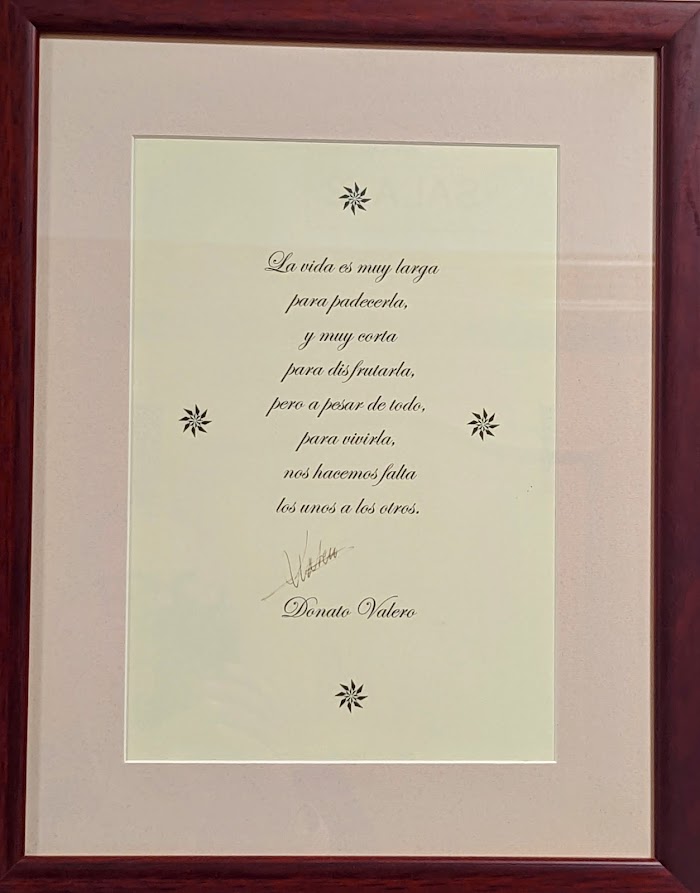 La vida es muy larga
para padecerla,
y muy corta
para disfrutarla,
pero a pesar de todo,
para vivirla,
nos hacemos falta
los unos a los otros.
Valero
Donato Valero